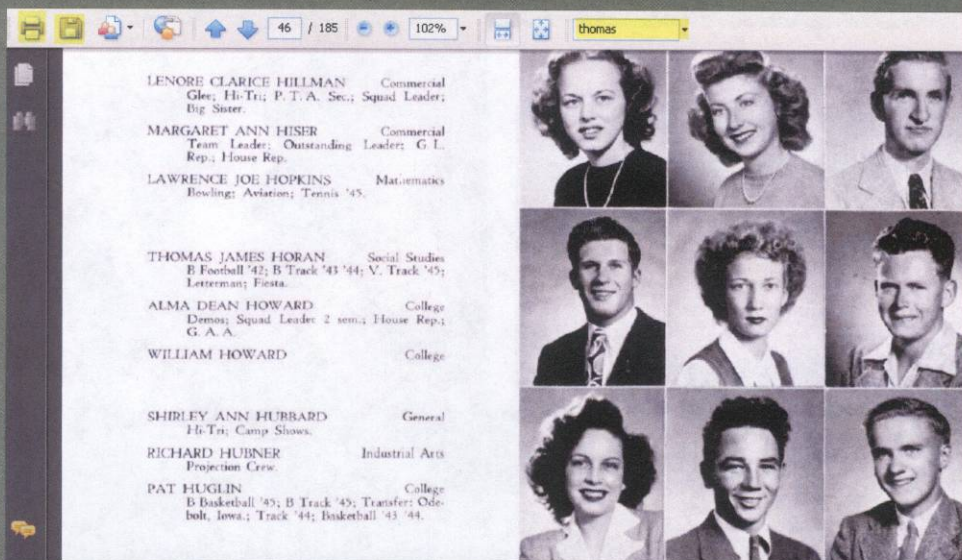 46 / 185 102% thomas
LENORE CLARICE HILLMAN Commercial
Glee; Hi-Tri; P. T. A. Sec.; Squad Leader;
Big Sister.
MARGARET ANN HISER Commercial
Team Leader; Outstanding Leader; G. L.
Rep.; House Rep.
LAWRENCE JOE HOPKINS Mathematics
Bowling; Aviation; Tennis '45.
THOMAS JAMES HORAN Social Studies
B Football '42; B Track '43 '44; V. Track '45;
Letterman; Fiesta.
ALMA DEAN HOWARD College
Demos; Squad Leader 2 sem.; House Rep.;
G. A. A.
WILLIAM HOWARD College
SHIRLEY ANN HUBBARD General
Hi-Tri; Camp Shows.
RICHARD HUBNER Industrial Arts
Projection Crew.
PAT HUGLIN College
B Basketball '45; B Track '45; Transfer: Ode-
bolt, Iowa.; Track '44; Basketball '43 '44.